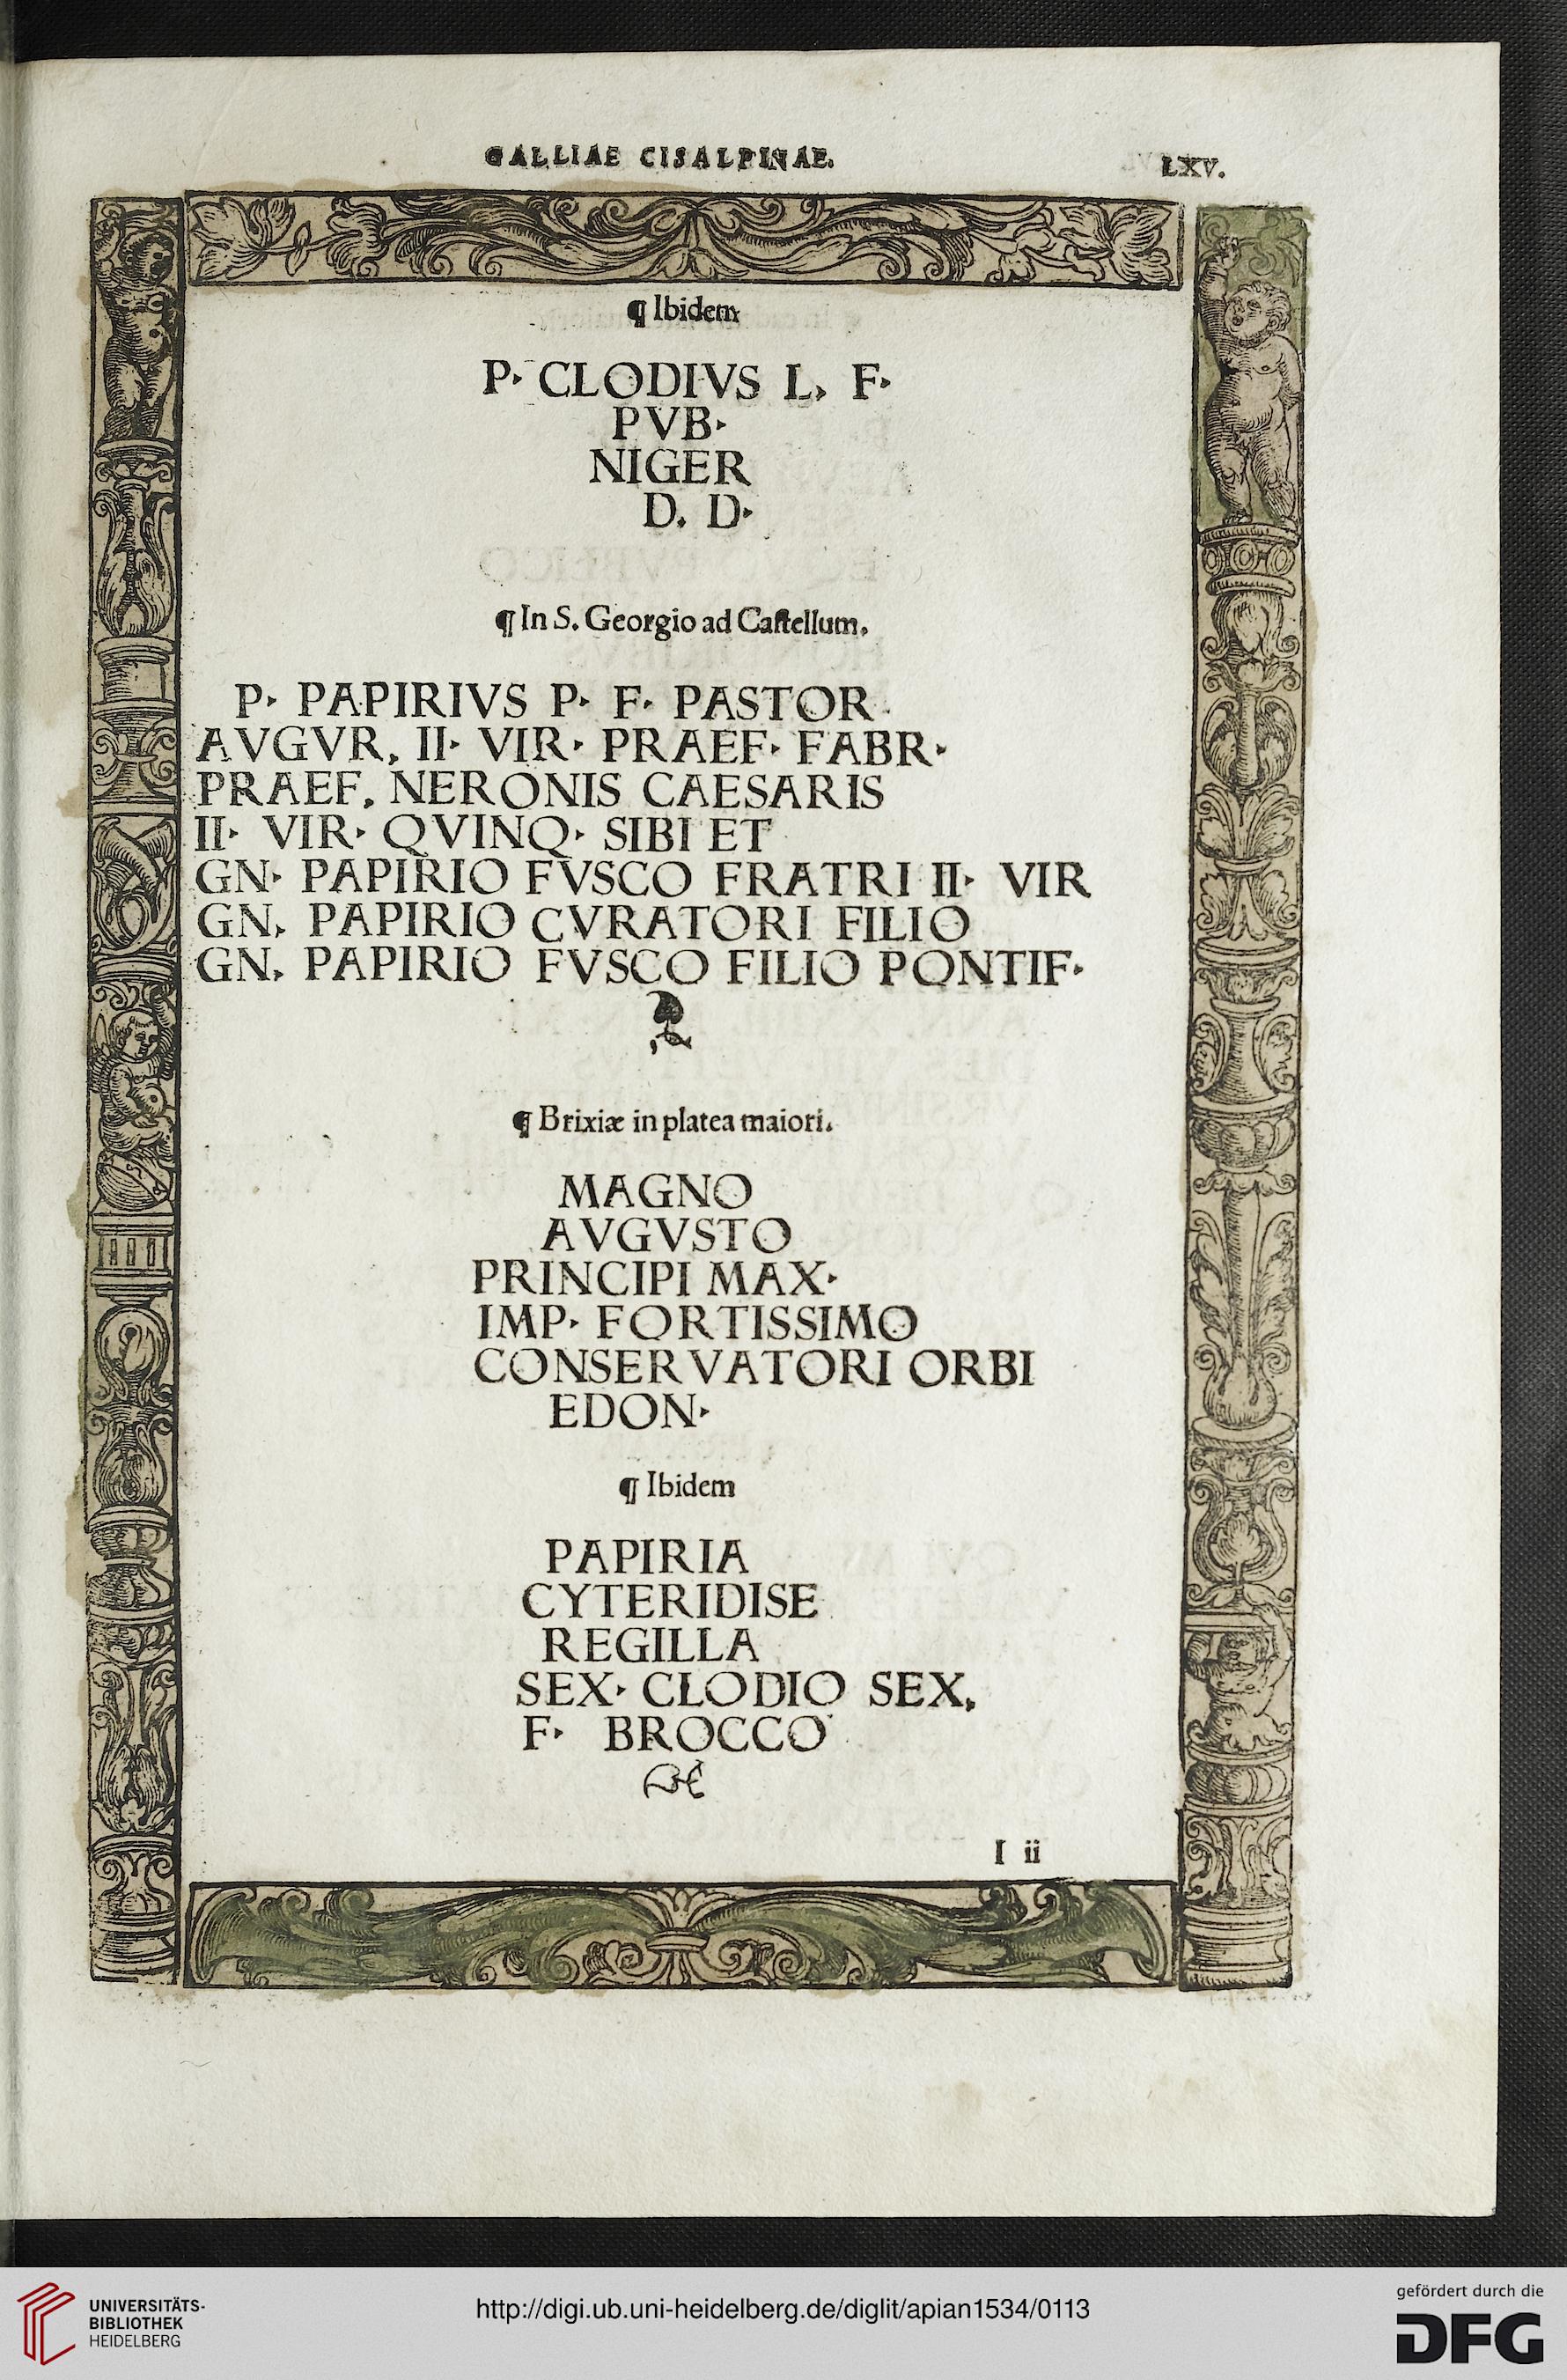 GALLIAE CISALPINAE. LXV.
¶ Ibidem
P· CLODIVS L, F·
PVB·
NIGER
D. D·
¶ In S. Georgio ad Castellum.
P· PAPIRIVS P· F· PASTOR
AVGVR, II· VIR· PRAEF· FABR·
PRAEF. NERONIS CAESARIS
II· VIR· QVINQ· SIBI ET
GN· PAPIRIO FVSCO FRATRI II· VIR
GN, PAPIRIO CVRATORI FILIO
GN, PAPIRIO FVSCO FILIO PONTIF·
¶ Brixiæ in platea maiori.
MAGNO
AVGVSTO
PRINCIPI MAX·
IMP· FORTISSIMO
CONSERVATORI ORBI
EDON·
¶ Ibidem
PAPIRIA
CYTERIDISE
REGILLA
SEX· CLODIO SEX,
F· BROCCO
I ii
UNIVERSITÄTS-
BIBLIOTHEK
HEIDELBERG
http://digi.ub.uni-heidelberg.de/diglit/apian1534/0113
gefördert durch die
DFG